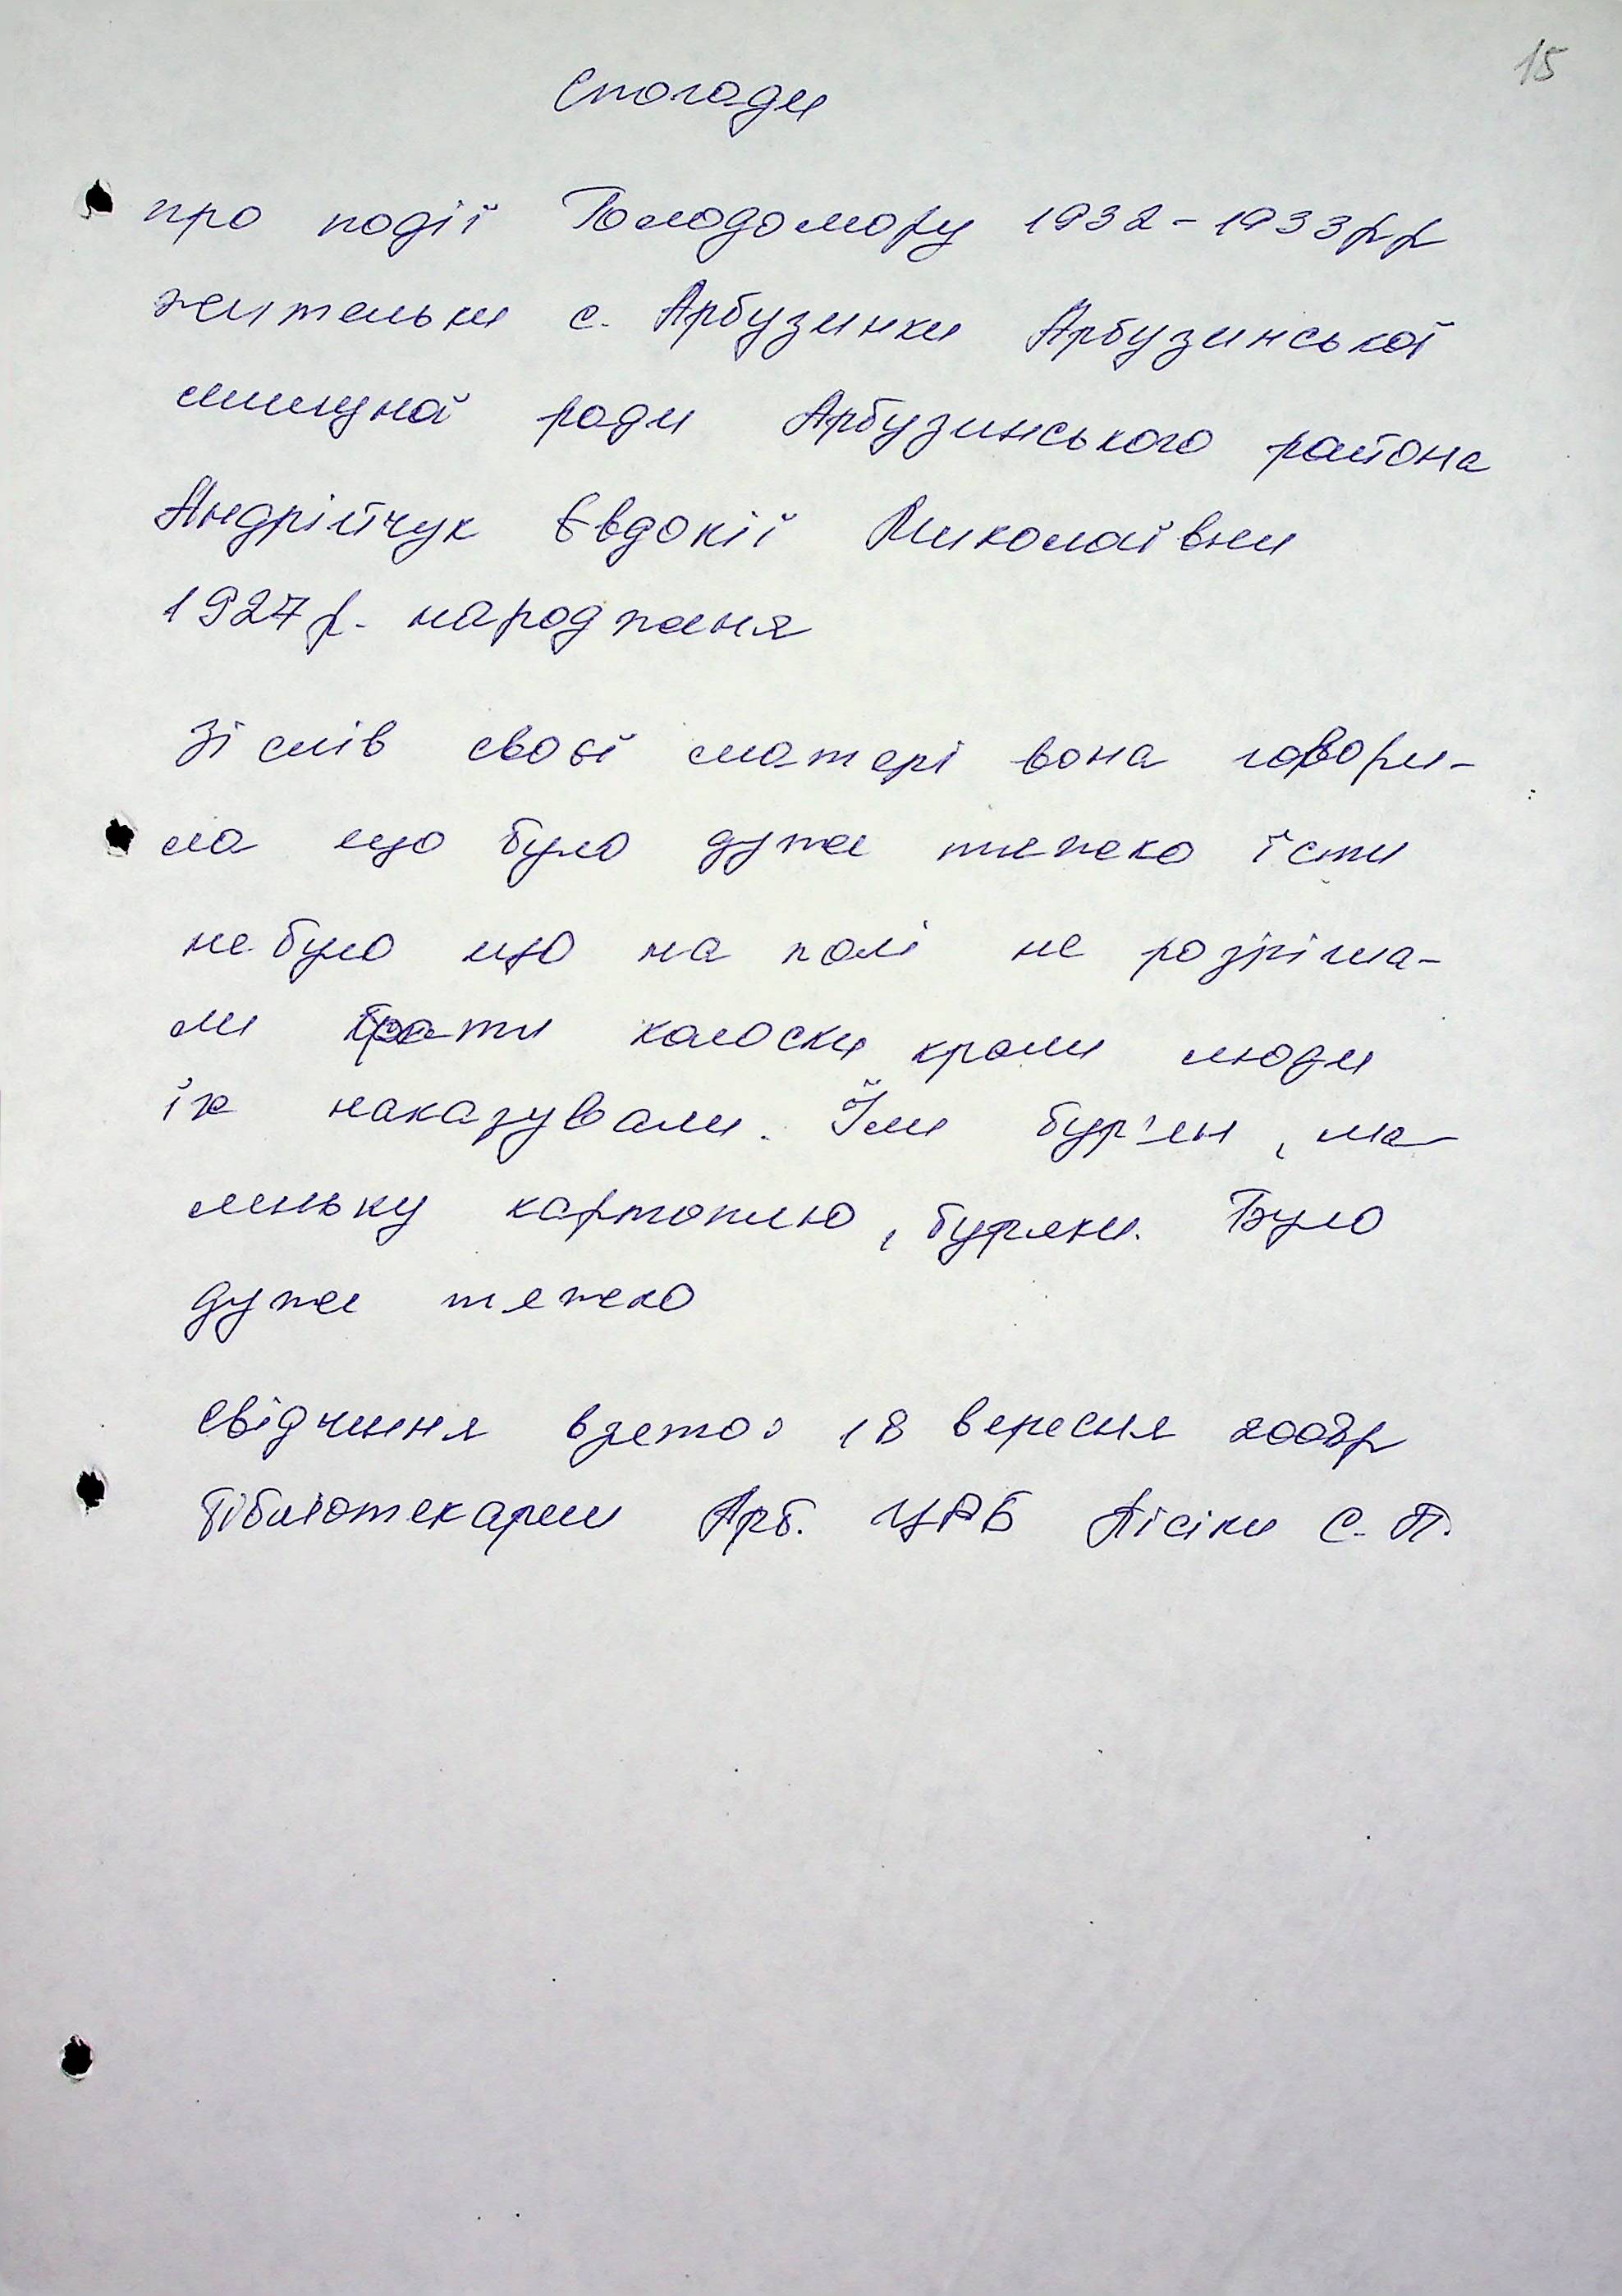 15
Спогади
про події Голодомору 1932-1933рр
жительки с. Арбузинки Арбузинської
селищної ради Арбузинського района
Андрійчук Євдокії Миколаївни
1927р. народженя
Зі слів своєї матері вона говори-
ла що було дуже тяжко їсти
не було що на полі не розріша-
ли брати колоски крали люди
їх наказували. Їли бур'ян, ма-
леньку картоплю, буряки. Було
дуже тяжко
Свідчення взято: 18 вересня 2008р
бібліотекарем Арб. ЦРБ С. П.